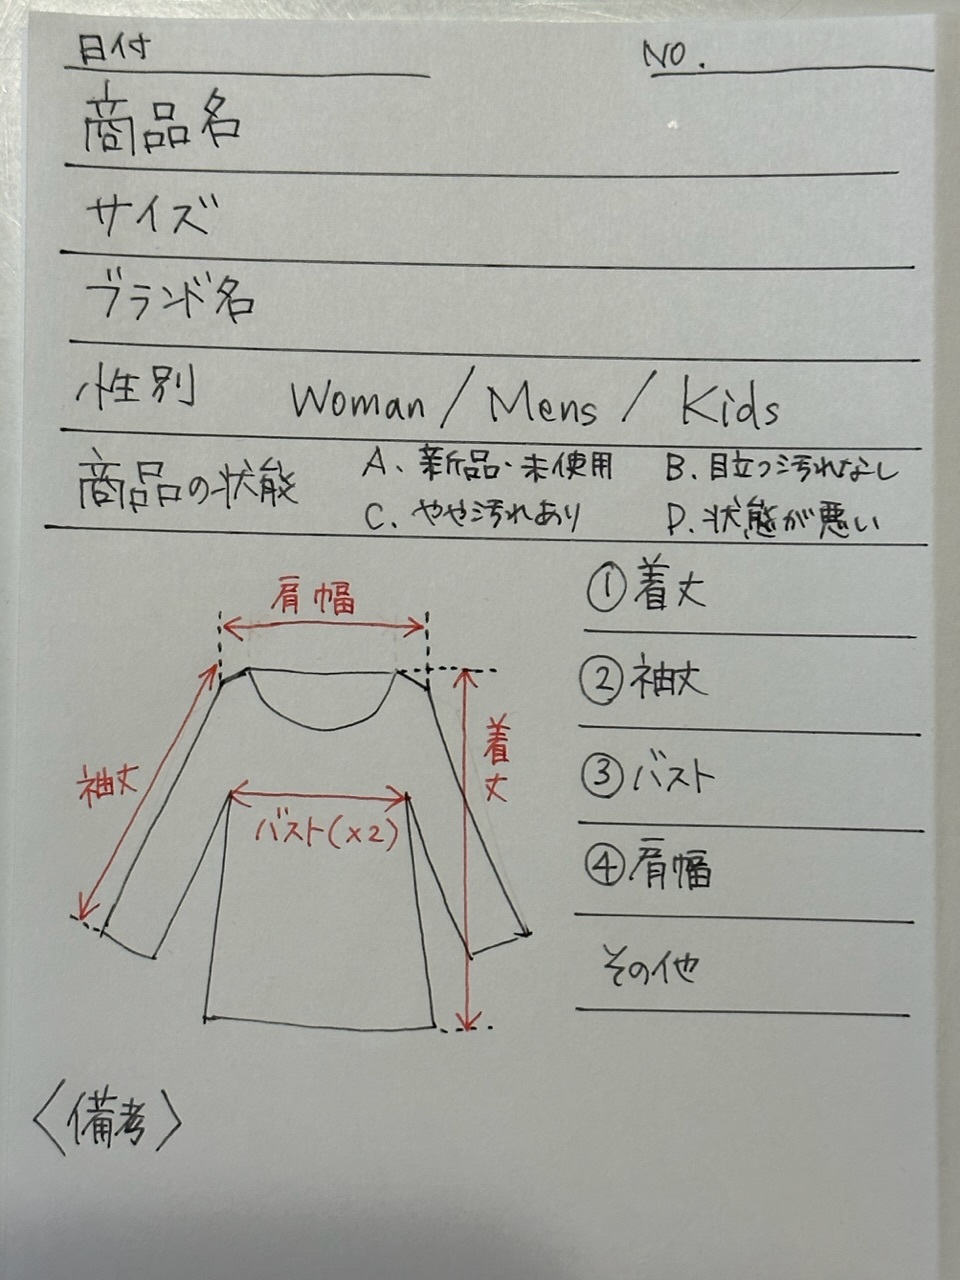 日付 NO.
商品名
サイズ
ブランド名
性別 Woman / Mens / Kids
商品の状態 A、新品・未使用 B、目立つ汚れなし
C、やや汚れあり D、状態が悪い
肩幅
袖丈
着丈
バスト(×2)
①着丈
②袖丈
③バスト
④肩幅
その他
〈備考〉